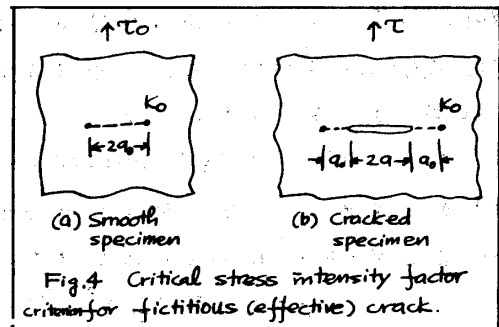 ↑τ₀ ↑τ
K₀ K₀
|←2a₀→| |a₀|←2a→|a₀|
(a) Smooth specimen
(b) Cracked specimen
Fig.4 Critical stress intensity factor
criterion for fictitious (effective) crack.